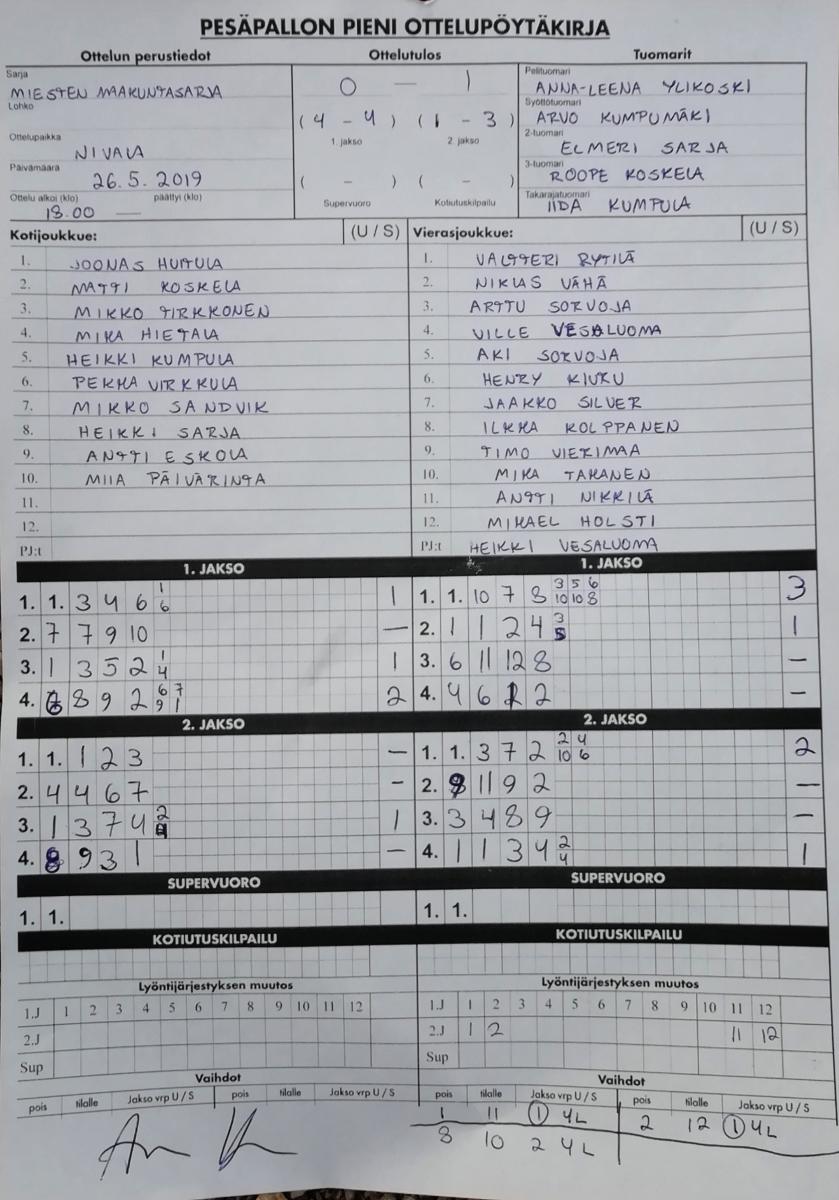 PESÄPALLON PIENI OTTELUPÖYTÄKIRJA
Ottelun perustiedot Ottelutulos Tuomarit
Sarja
MIESTEN MAKUNTASARJA
Lohko
Ottelupaikka
NIVALA
Päivämäärä
26.5.2019
Ottelu alkoi (klo) päättyi (klo)
18.00 —
0 — 1
(4 - 4) (1 - 3)
1. jakso 2. jakso
( - ) ( - )
Supervuoro Kotiutuskilpailu
Pelituomari
ANNA-LEENA YLIKOSKI
Syöttötuomari
ARVO KUMPUMÄKI
2-tuomari
ELMERI SARJA
3-tuomari
ROOPE KOSKELA
Takarajatuomari
IIDA KUMPULA
Kotijoukkue: (U / S) Vierasjoukkue: (U / S)
1. JOONAS HUITULA 1. VALTTERI RYTILÄ
2. MATTI KOSKELA 2. NIKLAS VÄHÄ
3. MIKKO TIRKKONEN 3. ARTTU SORVOJA
4. MIKA HIETALA 4. VILLE VESALUOMA
5. HEIKKI KUMPULA 5. AKI SORVOJA
6. PEKKA VIRKKULA 6. HENRY KIUKU
7. MIKKO SANDVIK 7. JAAKKO SILVER
8. HEIKKI SARJA 8. ILKKA KOLPPANEN
9. ANTTI ESKOLA 9. TIMO VIERIMAA
10. MIIA PÄIVÄRINTA 10. MIKA TAKANEN
11. 11. ANTTI NIKKILÄ
12. 12. MIKAEL HOLSTI
PJ:t PJ:t HEIKKI VESALUOMA
1. JAKSO 1. JAKSO
1. 1. 3 4 6 1 6 1 1. 1. 10 7 8 3 5 6 10 10 8 3
2. 7 7 9 10 — 2. 1 1 2 4 3 5 1
3. 1 3 5 2 1 4 1 3. 6 11 12 8 —
4. 8 9 2 6 7 9 1 2 4. 4 6 2 —
2. JAKSO 2. JAKSO
1. 1. 1 2 3 — 1. 1. 3 7 2 2 4 10 6 2
2. 4 4 6 7 - 2. 9 11 9 2 —
3. 1 3 7 4 2 1 3. 3 4 8 9 —
4. 8 9 3 1 — 4. 1 1 3 4 2 4 1
SUPERVUORO SUPERVUORO
1. 1. 1. 1.
KOTIUTUSKILPAILU KOTIUTUSKILPAILU
Lyöntijärjestyksen muutos Lyöntijärjestyksen muutos
1.J 1 2 3 4 5 6 7 8 9 10 11 12 1.J 1 2 3 4 5 6 7 8 9 10 11 12
2.J 2.J 1 2 11 12
Sup Sup
Vaihdot Vaihdot
pois tilalle Jakso vrp U / S pois tilalle Jakso vrp U / S pois tilalle Jakso vrp U / S pois tilalle Jakso vrp U / S
1 11 1 4L 2 12 1 4L
8 10 2 4L